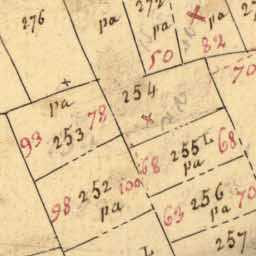 276
pa
272
pa
pa
50
82
70
254
pa
78
93
253
68
255 L
pa
68
252
100
98
pa
63
256
pa
70
257